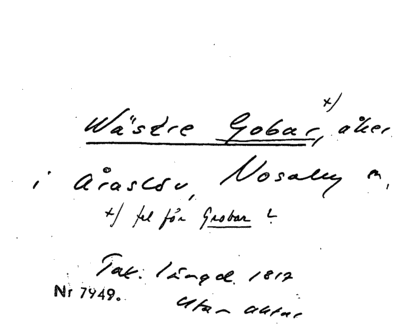 x)
Wästre Gobar, åker
i Åraslöv, Nosaby m.
x) fel för Grobar ?
Tax. längd. 1812
Nr 7949.
utan aktnr